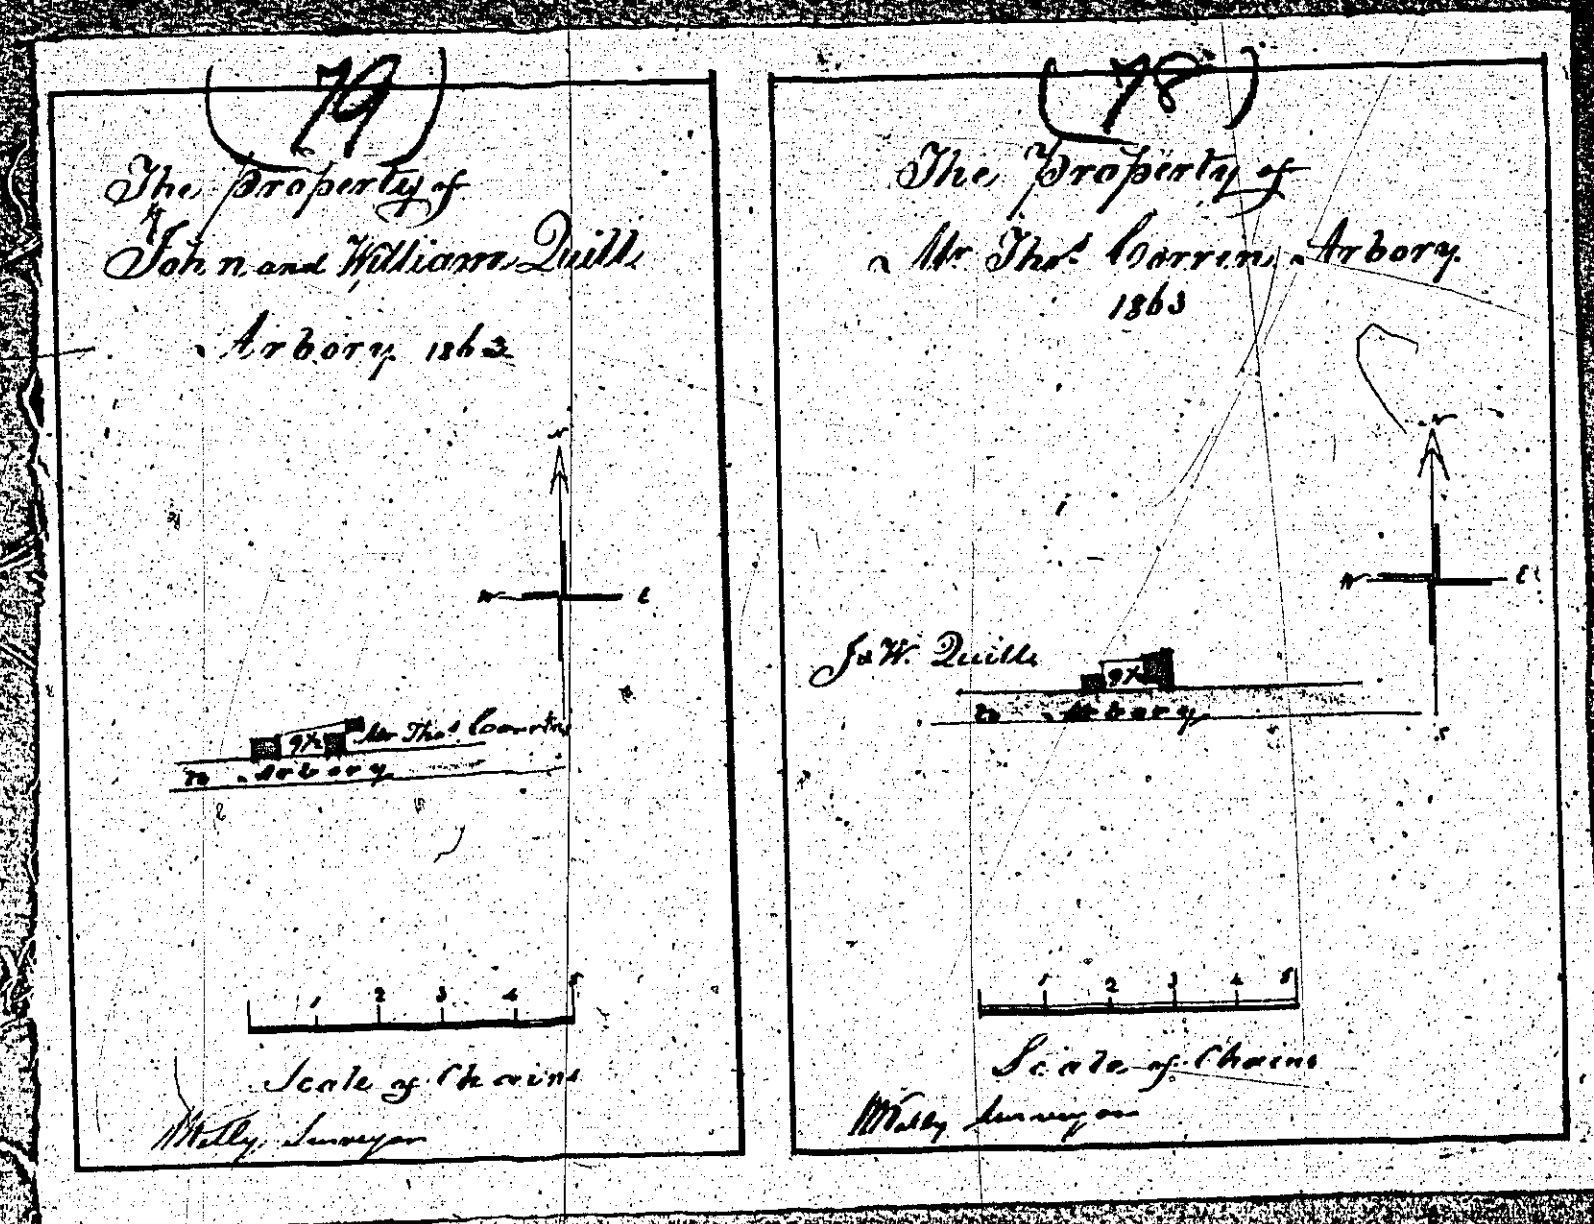 (79)
The Property of
John and William Quill
Arbory 1863
N
W E
9½ Mr Thos. Carrin
To Arbory
1 2 3 4 5
Scale of Chains
Surveyor
(78)
The Property of
Mr Thos. Carrin Arbory
1863
N
W E
J & W. Quill
9½
To Arbory
S
1 2 3 4 5
Scale of Chains
Surveyor